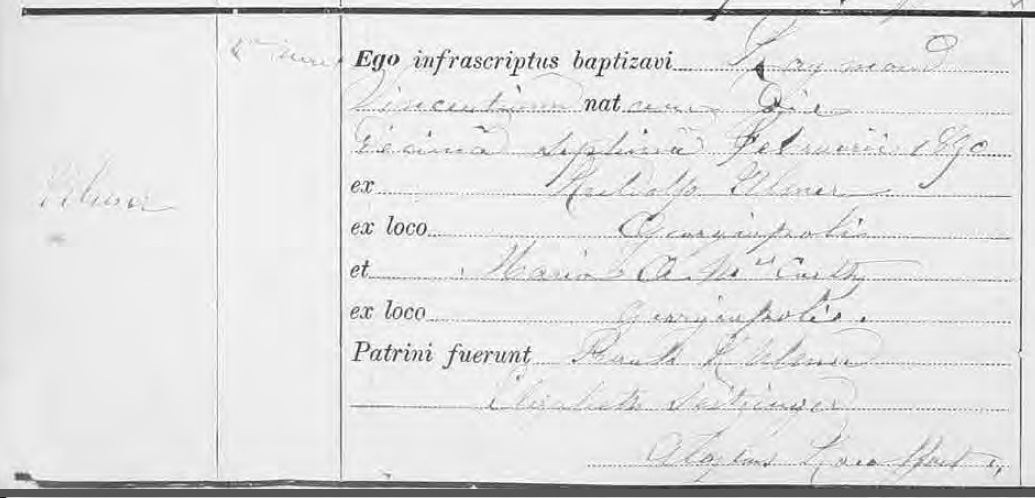 Ulmer
Ego infrascriptus baptizavi Raymond
Vincentium natum die
decimâ septimâ Februarii 1890
ex Rudolfo Ulmer
ex loco Georgiopolis
et Maria A McCarthy
ex loco Georgiopolis.
Patrini fuerunt Ulmer
Elizabeth Seitzinger